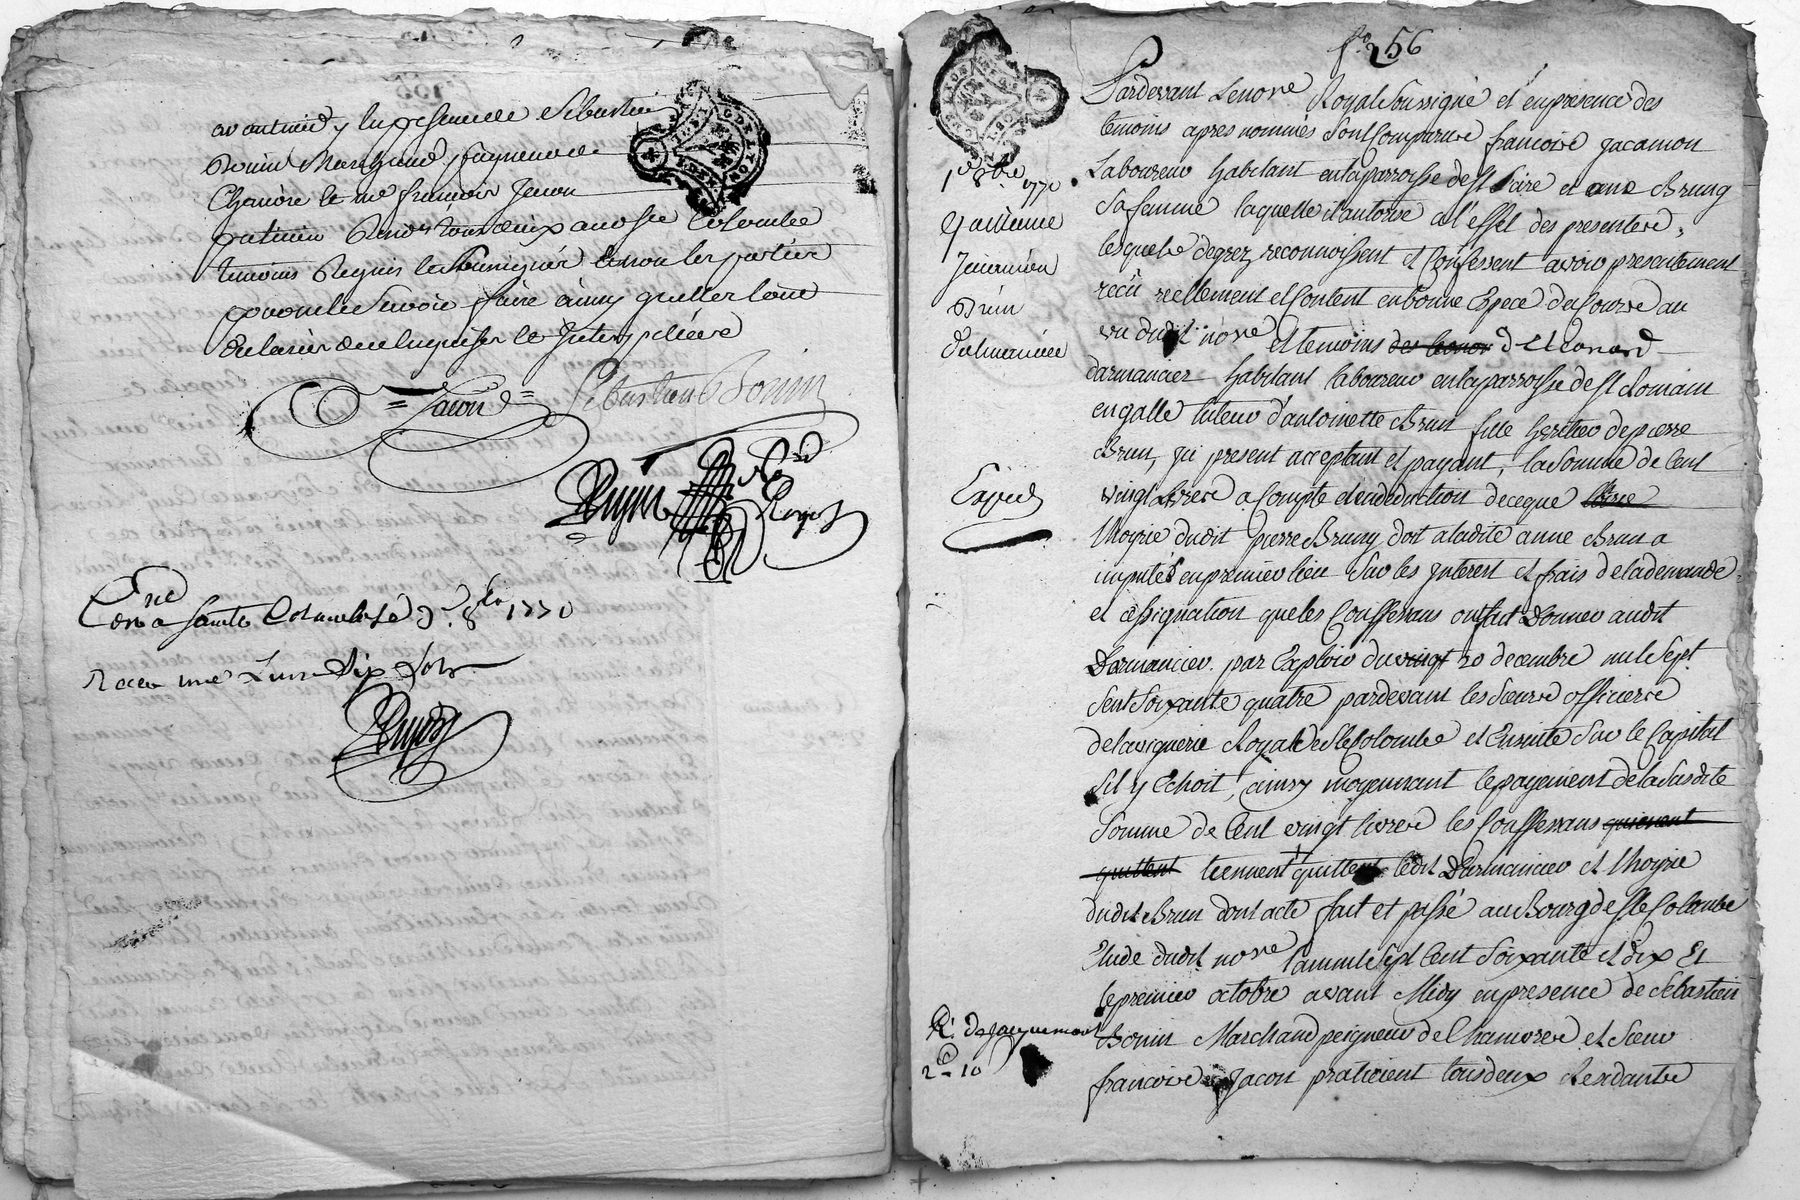 avant midy en presence de Sebastien
Bonin Marchand peigneur de
Chanvre et me françois Jacon
praticien tous deux a Ste Colombe
temoins requis et soussignés et non les parties
pour ne le savoir faire ainsy quelles l'ont
declaré de ce enquises et interpellées
Jacon
Sebastien Bonin
Cne
Con a Sainte Colombe le 9e 8bre 1770
Recu une Livre dix sols
fo 256
Pardevant Lenore Royal Soussigné et en presence des
temoins apres nommés sont Comparus francoise jacamon
Laboureur habitant en la parroisse de St Cire et ane Brung
sa femme laquelle il autorise a l'effet des presentes,
lesquels degrez reconnoissent et Confessent avoir presentement
recû reellement et Content en bonne Espece du Cours au
vu dudit nore et temoins des leonor d Eleonard
darmancier habitant laboureur en la parroisse de St Romain
en galle tuteur d'antoinette Brun fille heritier de pierre
Brun, ici present acceptant et payant, la Somme de Cent
vingt Livres a Compte et en deduction de ce que
l'hoyrie dudit pierre Bruny doit a ladite anne Brun a
imputés en premier lieu Sur les Interest et frais de la demande
et assignation que les Confessans ont fait Donner audit
Darmancier par Exploit du vingt 20 decembre mil Sept
Cent Soixante quatre pardevant les Sieurs officiers
de la viguerie Royale de Ste Colombe et Ensuite Sur le Capital
Sil y Echoit, ainsy moyennant le payement de la Susdite
Somme de Cent vingt livres les Confessans quienent
quittent tiennent quittent ledit Darmancier et l'hoyrie
dudit Brun dont acte fait et passé au Bourg de Ste Colombe
Etude dudit nore lan mil Sept Cent Soixante et dix Et
le premier octobre avant Midy en presence de Sebastien
Bonin Marchand peigneur de Chanvre et Sieur
francoise Jacon praticient tous deux Residants
1er 8bre 1770
Quittance
Jacamon
Brun
Darmancier
Exped
R. de Jacquemont
2 - 10